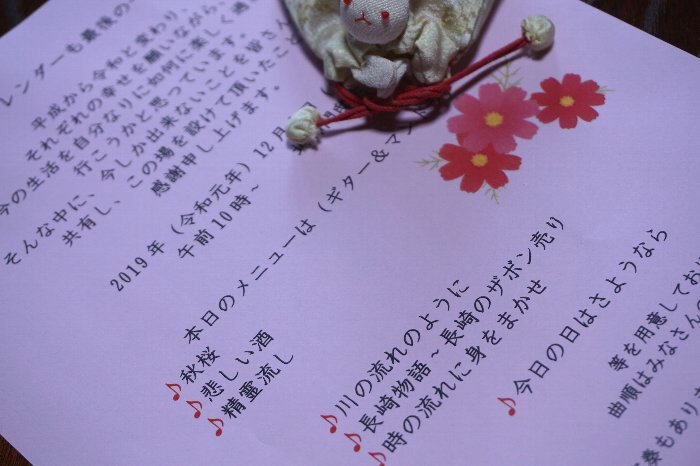 レンダーも最後の
平成から令和と変わり、
それぞれの幸せを願いながら、
今の生活を自分なりに如何に楽しく過
行こうかと思っています。
そんな中に、今しか出来ないことを皆さ
共有し、この場を設けて頂いたこと
感謝申し上げます。
2019年（令和元年）12月
午前10時～
本日のメニューは（ギター＆マン
♪秋桜
♪悲しい酒
♪精霊流し
♪川の流れのように
♪長崎物語～長崎のザボン売り
♪時の流れに身をまかせ
♪今日の日はさようなら
等を用意してお
曲順はみなさん
奏もあり